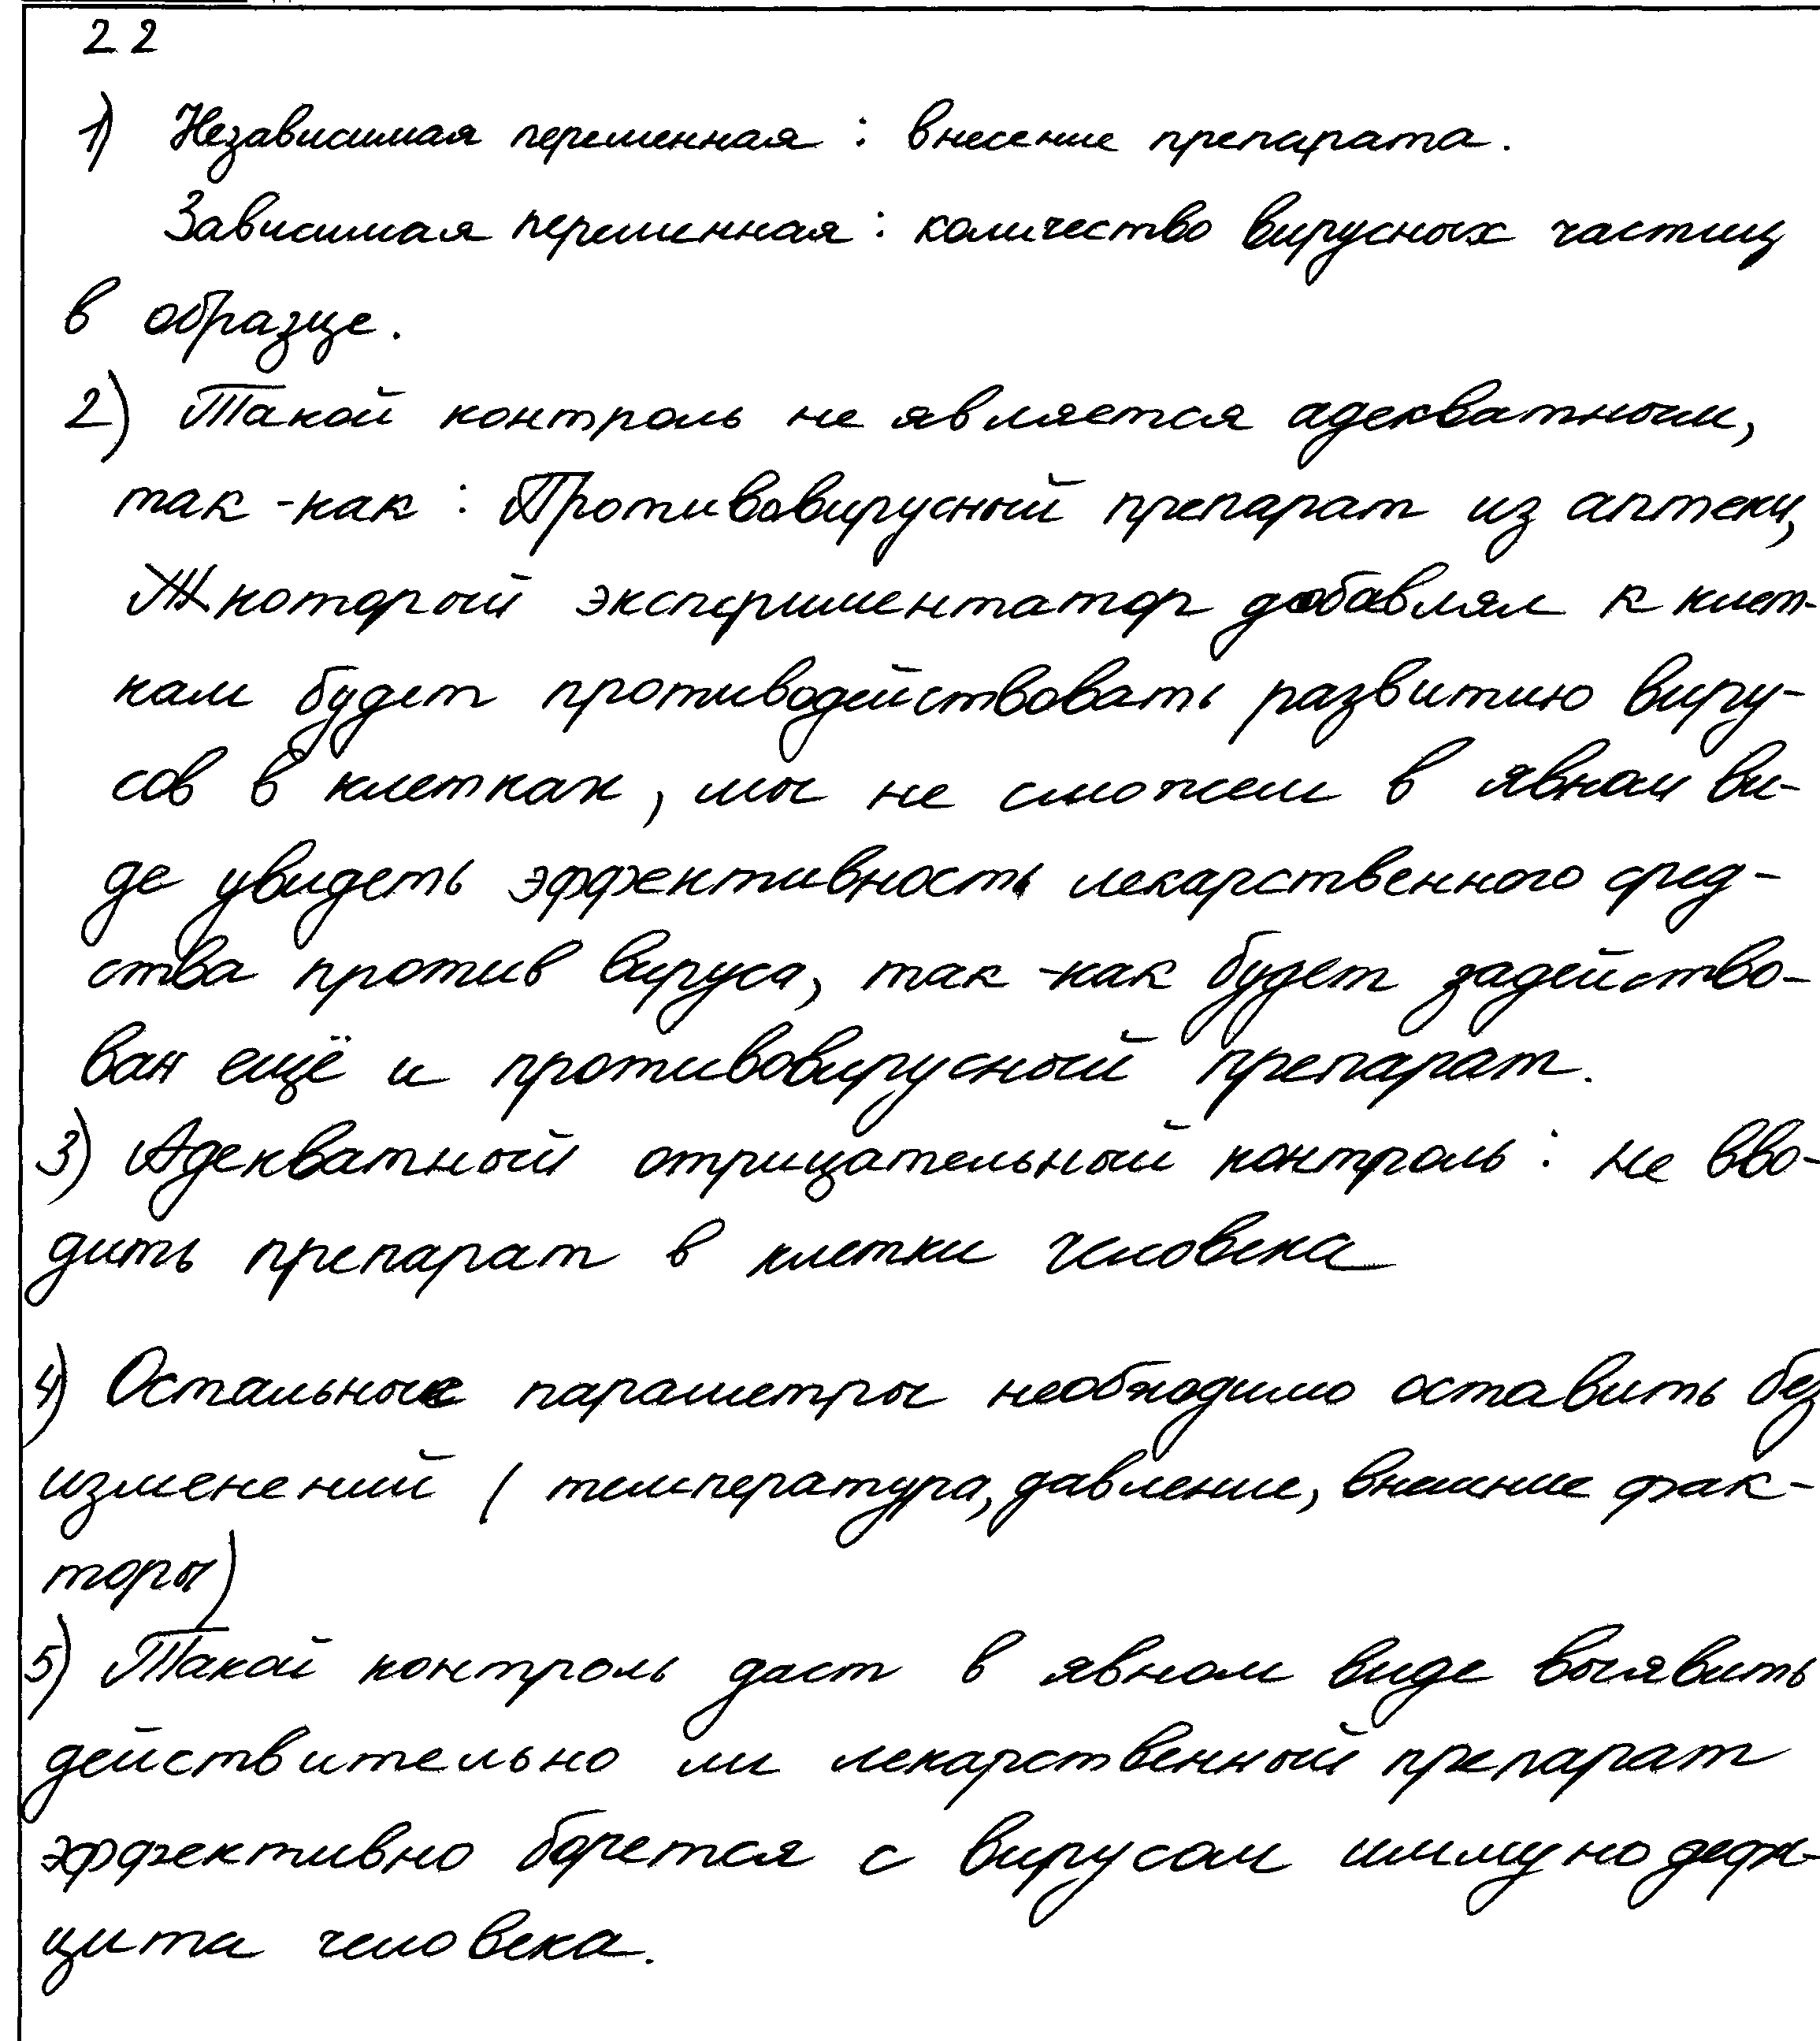 22
1) Независимая переменная : внесение препарата.
Зависимая переменная : количество вирусных частиц
в образце.
2) Такой контроль не является адекватным,
так-как : Противовирусный препарат из аптеки,
который экспериментатор добавлял к клет-
кам будет противодействовать развитию виру-
сов в клетках, мы не сможем в явном ви-
де увидеть эффективность лекарственного сред-
ства против вируса, так-как будет задейство-
ван ещё и противовирусный препарат.
3) Адекватный отрицательный контроль : не вво-
дить препарат в клетки человека
4) Остальные параметры необходимо оставить без
изменений ( температура, давление, внешние фак-
торы)
5) Такой контроль даст в явном виде выявить
действительно ли лекарственный препарат
эффективно борется с вирусом иммунодефи-
цита человека.